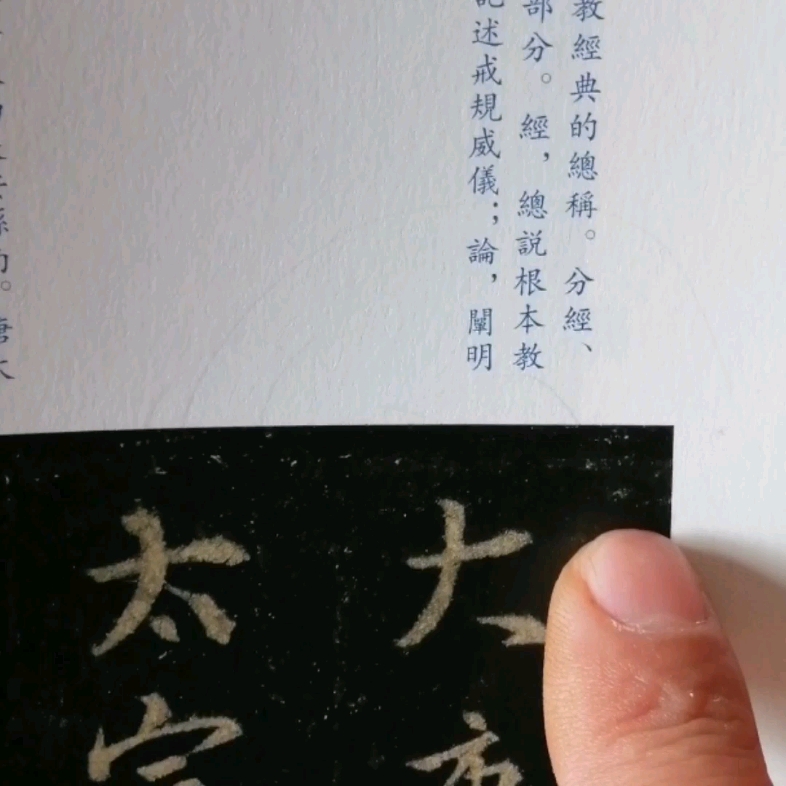 教經典的總稱。分經、
部分。經，總説根本教
述戒規威儀；論，闡明
大
太宗